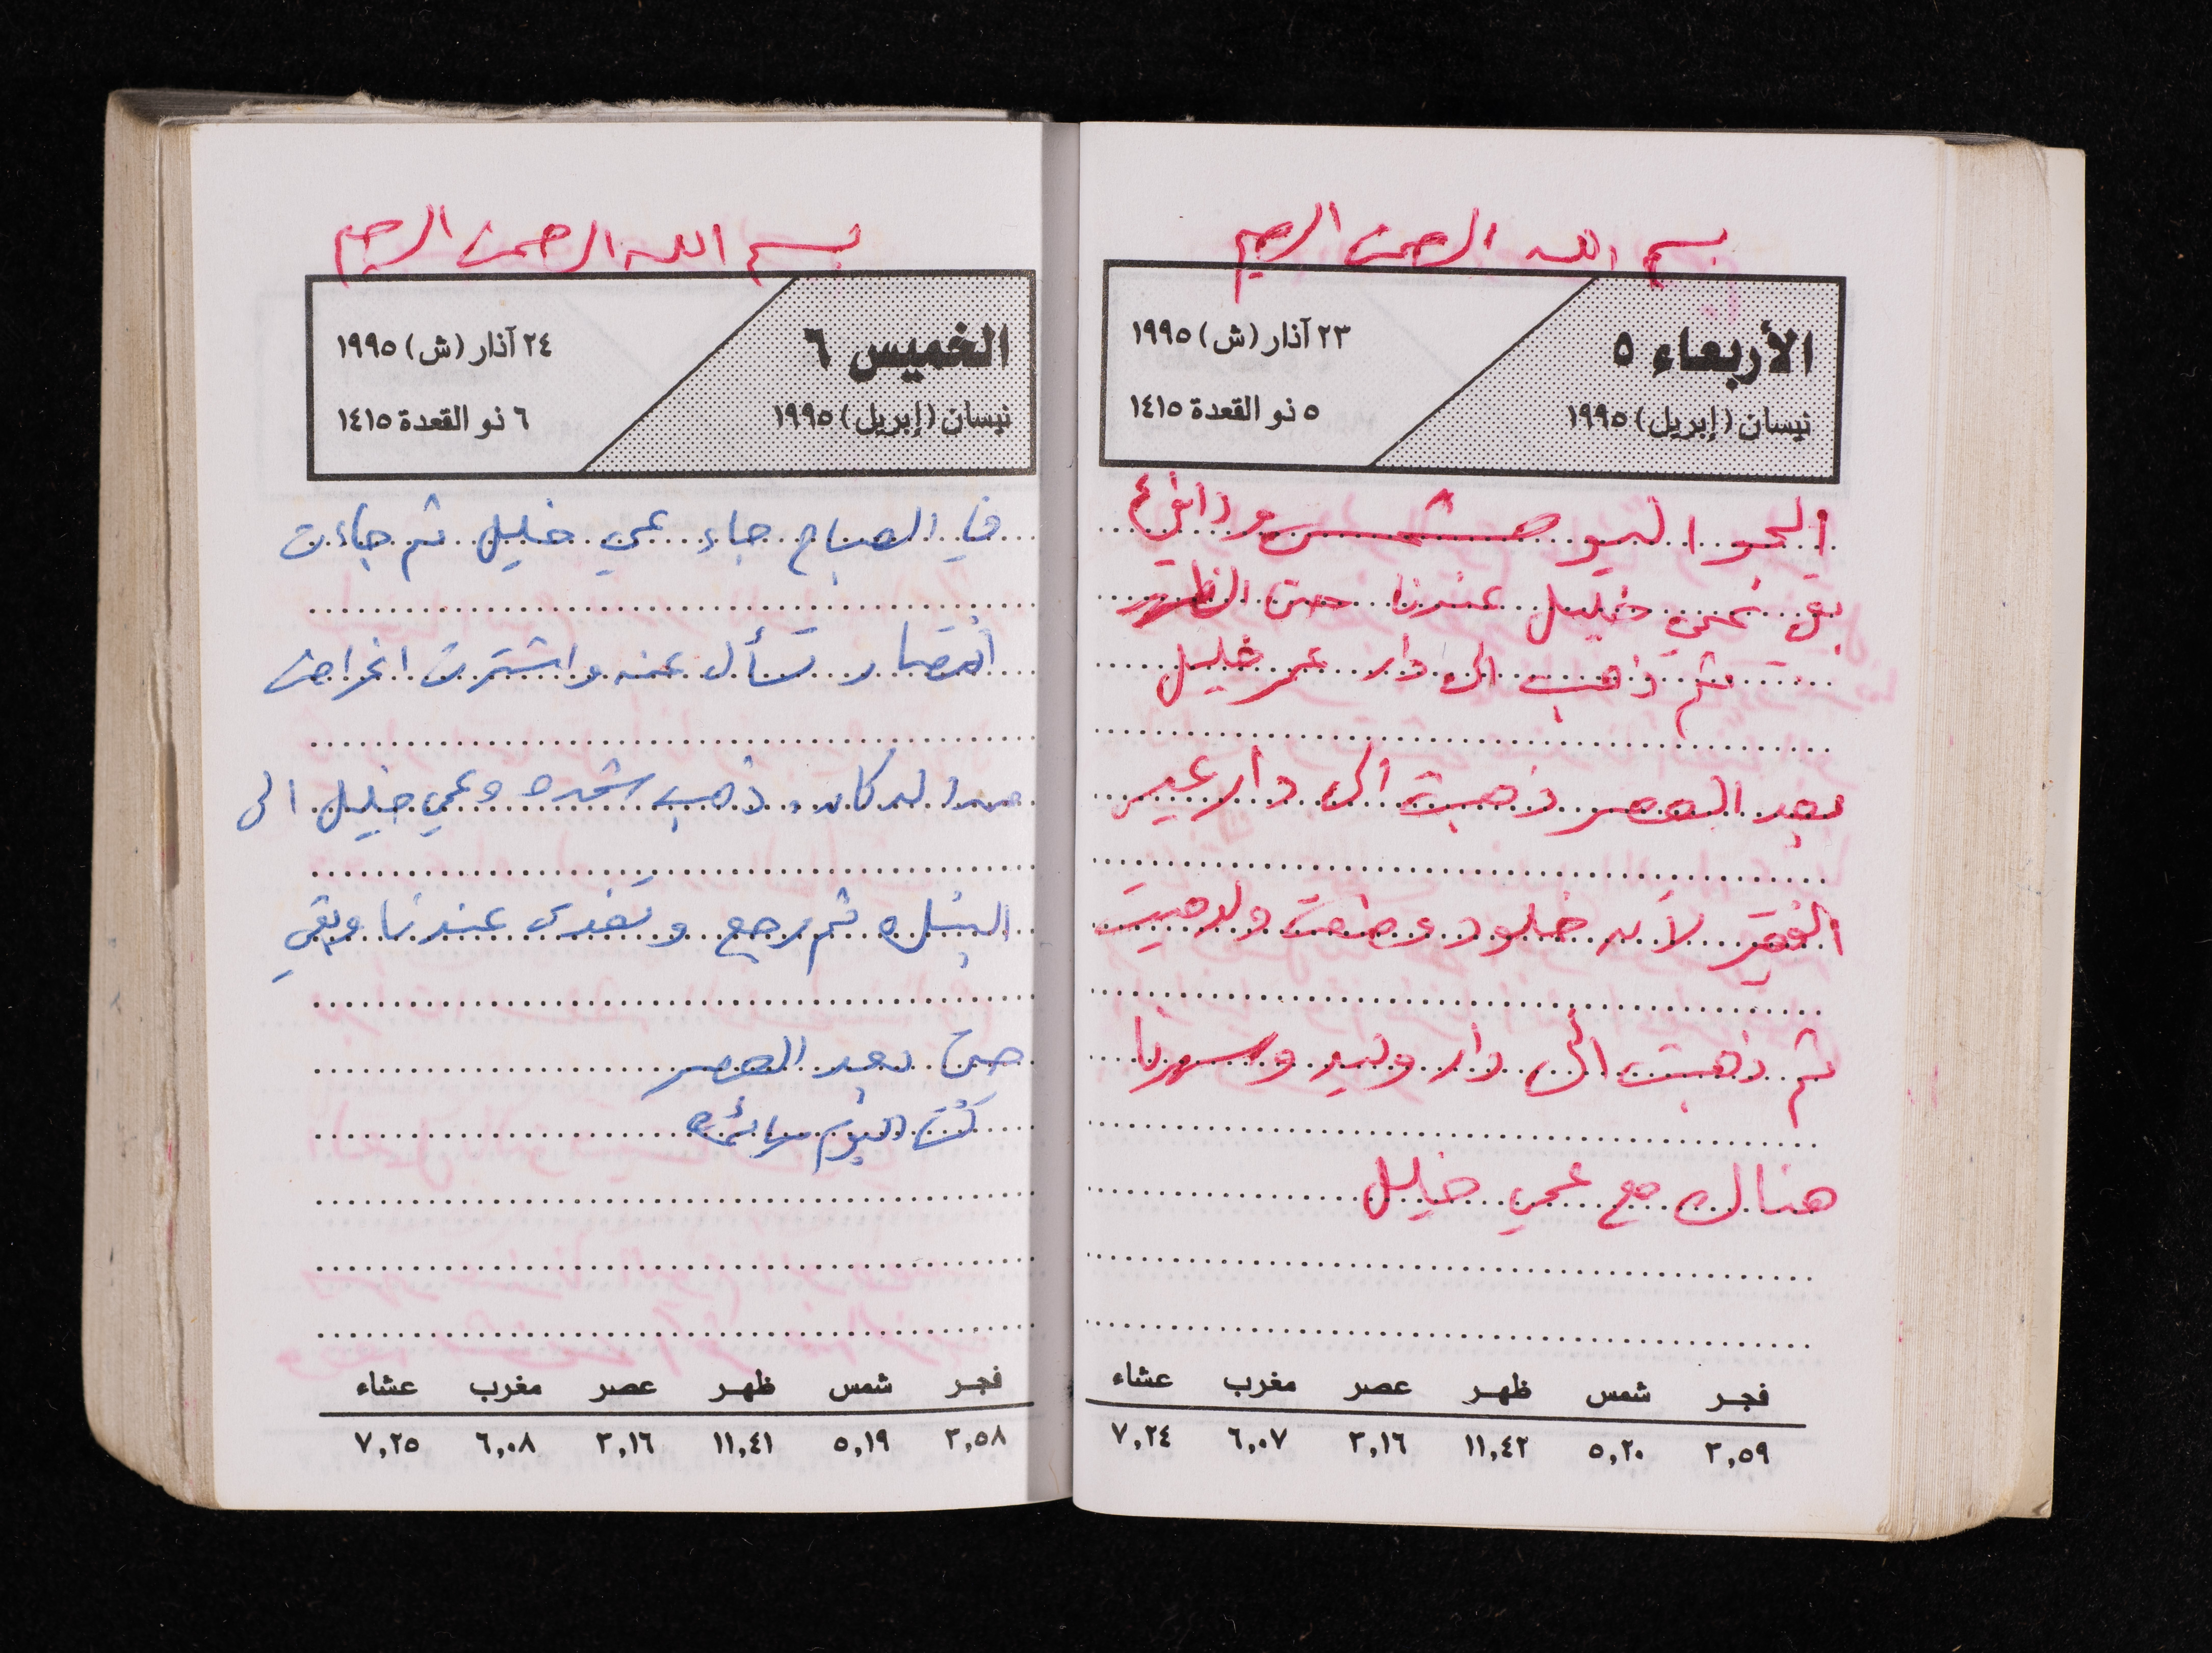 بسم الله الرحمن الرحيم
الأربعاء ٥
نيسان (إبريل) ١٩٩٥
٢٣ آذار (ش) ١٩٩٥
٥ ذو القعدة ١٤١٥
الجو اليو مشمس ودافئ
بقي عمي خليل عندنا حتى الظهر
ثم ذهب الى دار عمر خليل
بعد العصر ذهبت الى دار عبير
الفقير لأن خلود وضعت ولد ميت
ثم ذهبت الى دار وليد وسهرنا
هناك مع عمي خليل
فجر شمس ظهر عصر مغرب عشاء
٣,٥٩ ٥,٢٠ ١١,٤٢ ٣,١٦ ٦,٠٧ ٧,٢٤
بسم الله الرحمن الرحيم
الخميس ٦
نيسان (إبريل) ١٩٩٥
٢٤ آذار (ش) ١٩٩٥
٦ ذو القعدة ١٤١٥
في الصباح جاء عمي خليل ثم جاءت
انتصار تسأل عنه واشترت اغراض
من الدكان. ذهب شحده وعمي خليل الى
البنك ثم رجع وتغدى عندنا وبقي
حتى بعد العصر
كنت اليوم صائمه
فجر شمس ظهر عصر مغرب عشاء
٣,٥٨ ٥,١٩ ١١,٤١ ٣,١٦ ٦,٠٨ ٧,٢٥